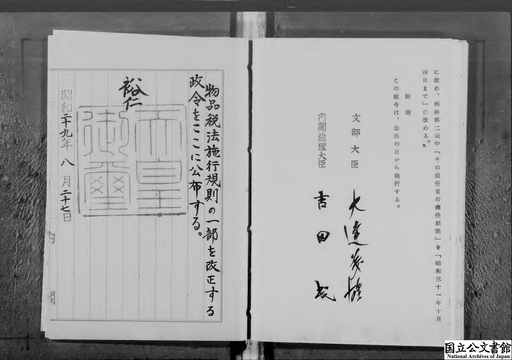 に改め、同条第二項中「その前任者の在任期間」を「昭和三十一年十月
四日まで」に改める。
附則
この政令は、公布の日から施行する。
文部大臣
大達茂雄
内閣総理大臣
吉田茂
物品税法施行規則の一部を改正する
政令をここに公布する。
裕仁
天皇
御璽
昭和二十九年八月二十七日
内閣
国立公文書館
National Archives of Japan